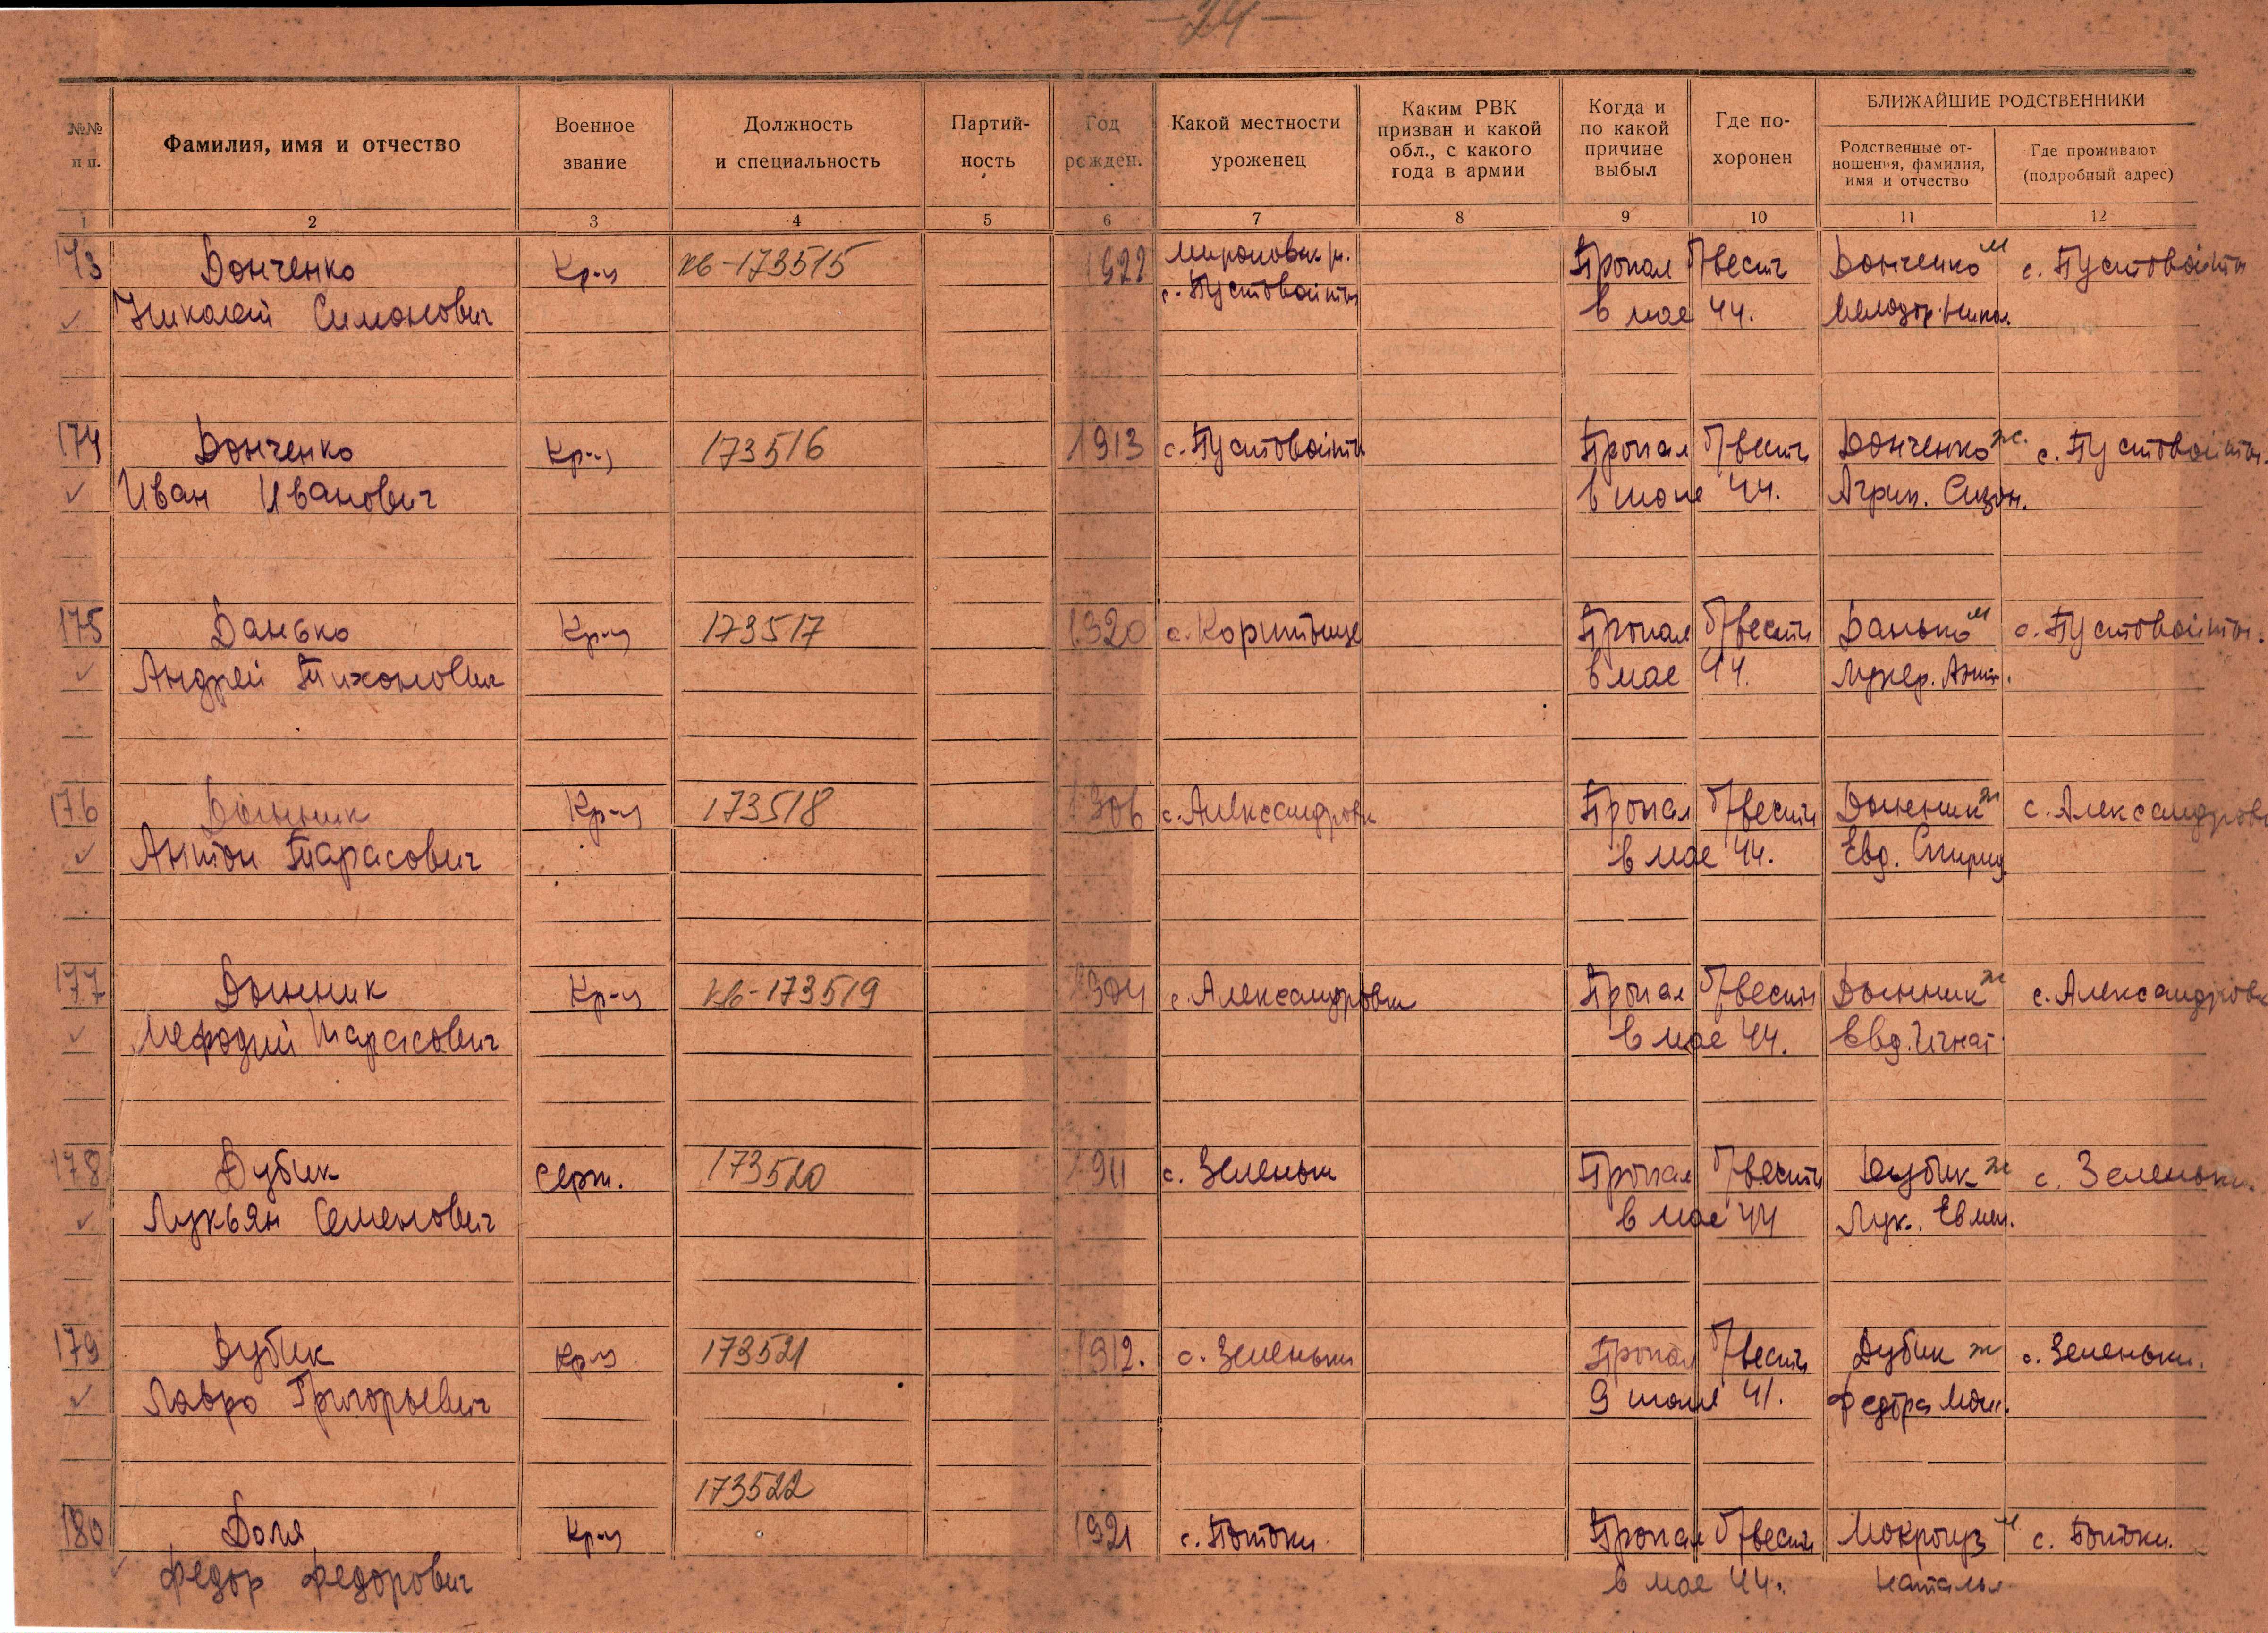 - 24 -
№№ п п.
Фамилия, имя и отчество
Военное звание
Должность и специальность
Партий-ность
Год рожден.
Какой местности уроженец
Каким РВК призван и какой обл., с какого года в армии
Когда и по какой причине выбыл
Где по-хоронен
БЛИЖАЙШИЕ РОДСТВЕННИКИ
Родственные от-ношения, фамилия, имя и отчество
Где проживают (подробный адрес)
1 2 3 4 5 6 7 8 9 10 11 12
173 Донченко Кр-ц кв-173515 1922 Мироновск р. Пропал б/вести Донченко м с. Пустовойты
Николай Симонович с. Пустовойты в мае 44. Никол.
174 Донченко Кр-ц 173516 1913 с. Пустовойты Пропал б/вести Донченко ж. с. Пустовойты.
Иван Иванович в июне 44. Агрип. Сизон.
175 Данько Кр-ц 173517 1920 с. Коритыще Пропал б/вести Данько м с. Пустовойты.
Андрей Тихонович в мае 44. Лукер. Ант.
176 Донник Кр-ц 173518 1906 с. Александровк Пропал б/вести Донник ж с. Александровк
Антон Тарасович в мае 44. Евд. Спирид.
177 Донник Кр-ц кв-173519 1904 с. Александровки Пропал б/вести Донник ж с. Александровк
Мефодий Тарасович в мае 44. Евд. Игнат
178 Дубик Серж. 173520 1911 с. Зеленьки Пропал б/вести Дубик ж с. Зеленьки.
Лукьян Семенович в мае 44 Лук. Евмен.
179 Дубик Кр-ц 173521 1912. с. Зеленьки Пропал б/вести Дубик ж с. Зеленьки.
Лавро Григорьевич 9 июля 41. Федора
173522
180 Доля Кр-ц 1921 с. Потоки Пропал б/вести Мокрогуз м с. Потоки.
Федор Федорович в мае 44. Наталья